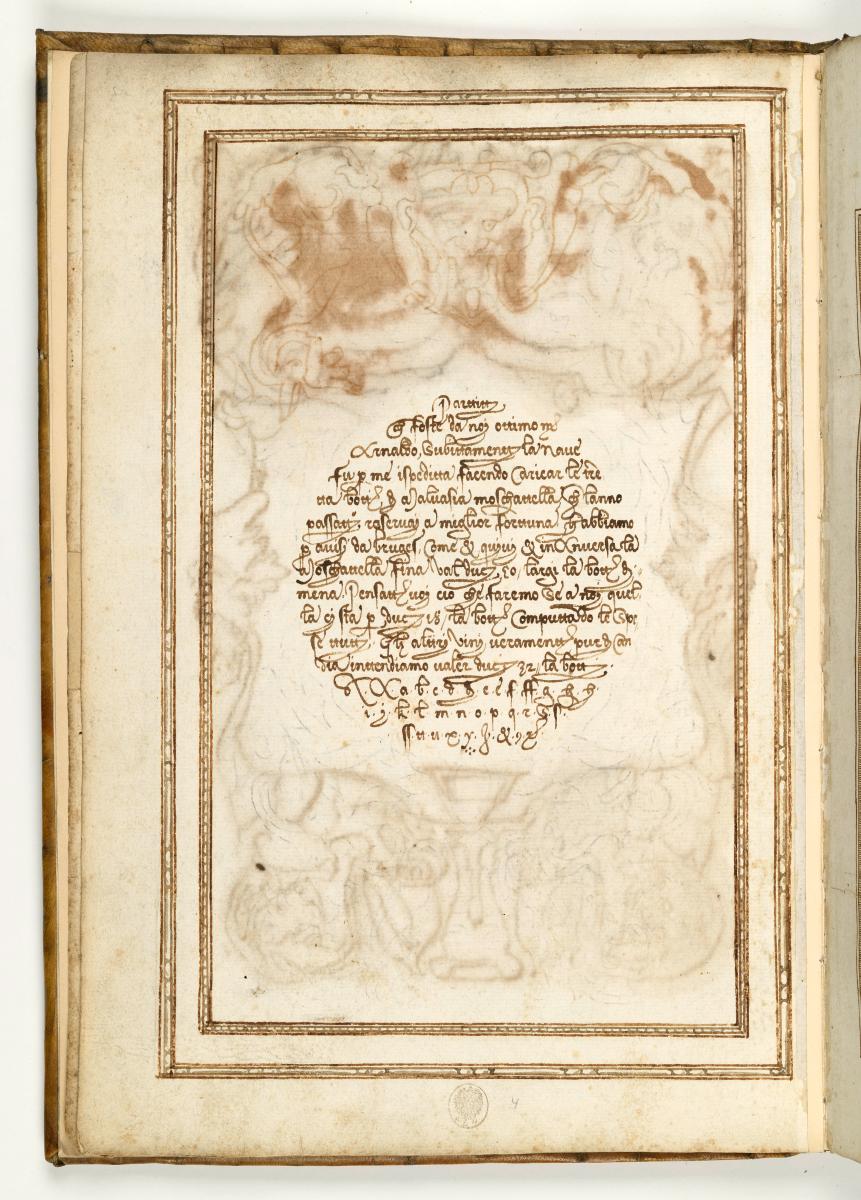 Partitti
Ch foste da noj ottimo mr
Arnaldo, Subittamentte la Naue
fu p me ispeditta facendo Caricar le tre
tta bott, di Maluasia moschattella, ch lanno
passatto, reseruaj a miglior forttuna, Ch abbiamo
p auisj da bruges, Come & quiuj & in Anuersa la
Moschattella fina Val duc, 20, largi la botte di
mena. Pensatte uoj cio che faremo Se a noj quel
la cj sta p Duc 18, la botte Computtado le Spe
se ttutte, Gli altrj Vinj ueramentte pur di Can
dia inttendiamo ualer ducj 32, la bott
A. X a. b. c. d. d. e. e. f. ff. g. h. h.
i. j. k. l. m. n. o. p. q. r. S. s.
ss. tt. u. x. y. z. &. 9. R
4